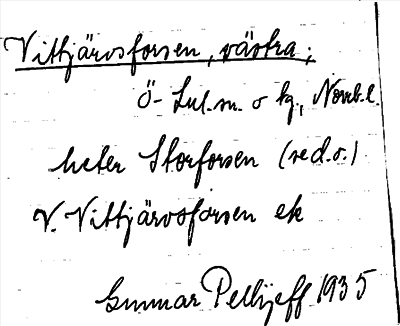 Vittjärvsforsen, västra;
Ö- Lul. sn. o tg., Norrb. l.
heter Storforsen (se d. o.)
V. Vittjärvsforsen ek
Gunnar Pellijeff 1935